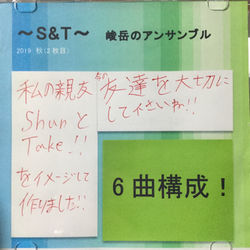 ～S&T～ 峻岳のアンサンブル
2019 秋(2枚目)
私の親友
Shunと
Take!!
をイメージして
作りました!!
友達を大切に
して下さいね!!
6曲構成!